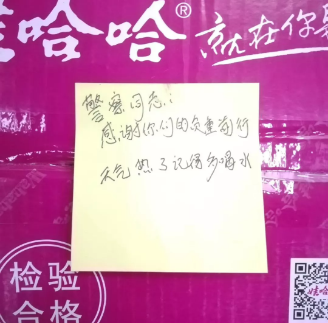 哇哈哈®
就在你
警察同志：
感谢你们的负重前行
天气热了记得多喝水
检验
合格